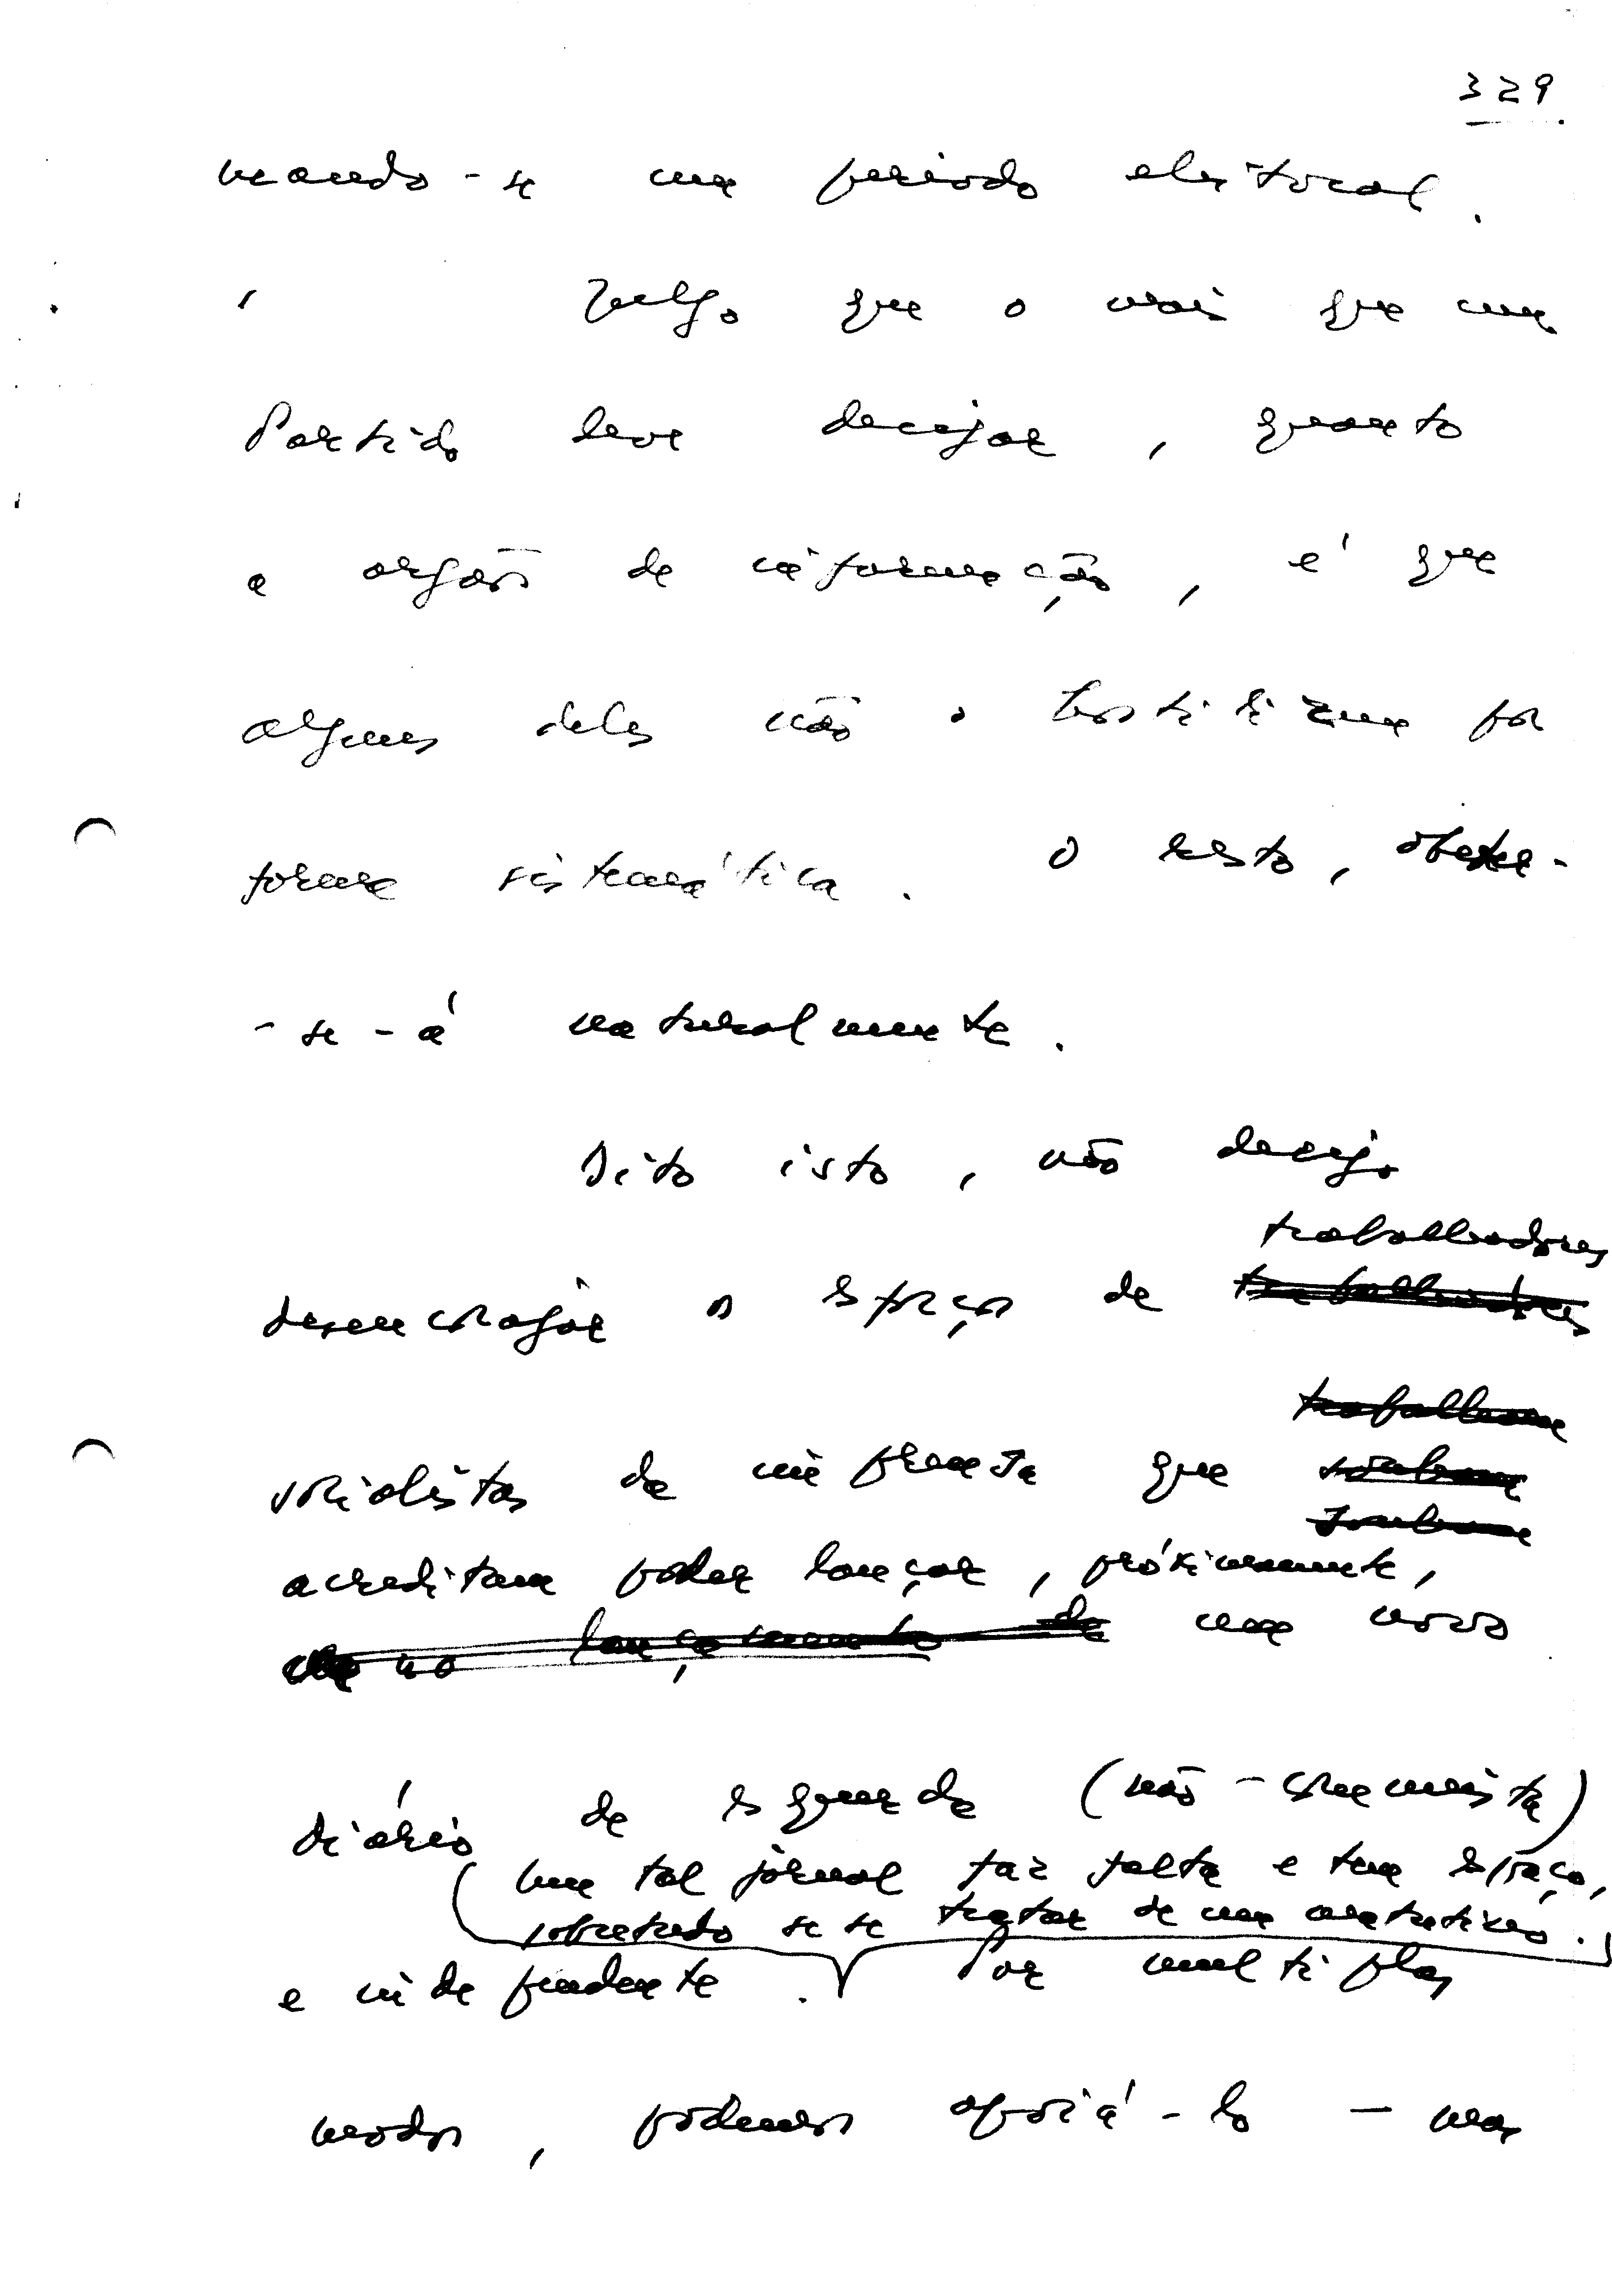 329
mando-se um periodo eleitoral.
Julgo que o mais que um
Partido deve desejar, quanto
a orgãos de informação, é que
alguns deles não o hostilizem por
forma sistemática. O resto, obter-
-se-á naturalmente.
Dito isto, não desejo
trabalhadores
desencorajar os esforços de trabalhadores
trabalham
socialistas da imprensa que sonham
sonham
acreditam poder lançar, próximamente,
no lançamento de um novo
diário de esquerda (não-comunista)
(Um tal jornal faz falta e tem espaço,
sobretudo se se tratar de um matutino.)
e independente. Por multiplos
modos, podemos apoiá-lo - mas